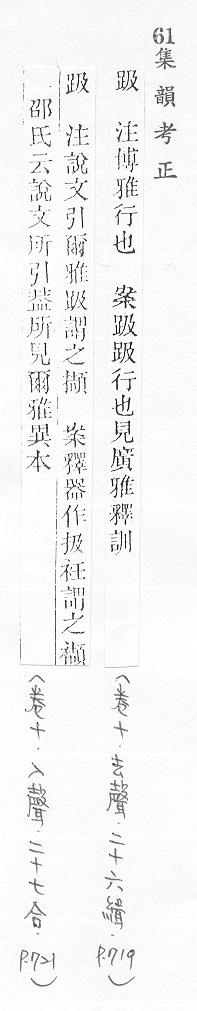 61集韻考正
趿　注博雅行也　案趿趿行也見廣雅釋訓
（卷十．去聲．二十六緝．P.719）
趿　注說文引爾雅趿謂之擷　案釋器作扱衽謂之襭
邵氏云說文所引葢所見爾雅異本
（卷十．入聲．二十七合．P.721）